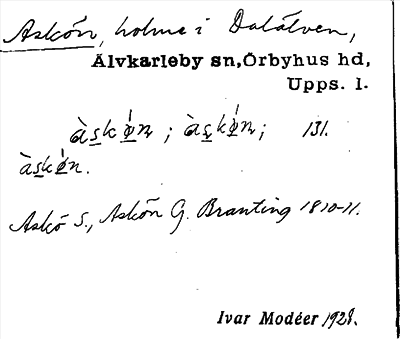 Askön, holme i Dalälven,
Älvkarleby sn, Örbyhus hd,
Upps. l.
àskǿn; àskǿn; 131.
àskǿn.
Askö S., Askön G. Branting 1810-11.
Ivar Modéer 1928.